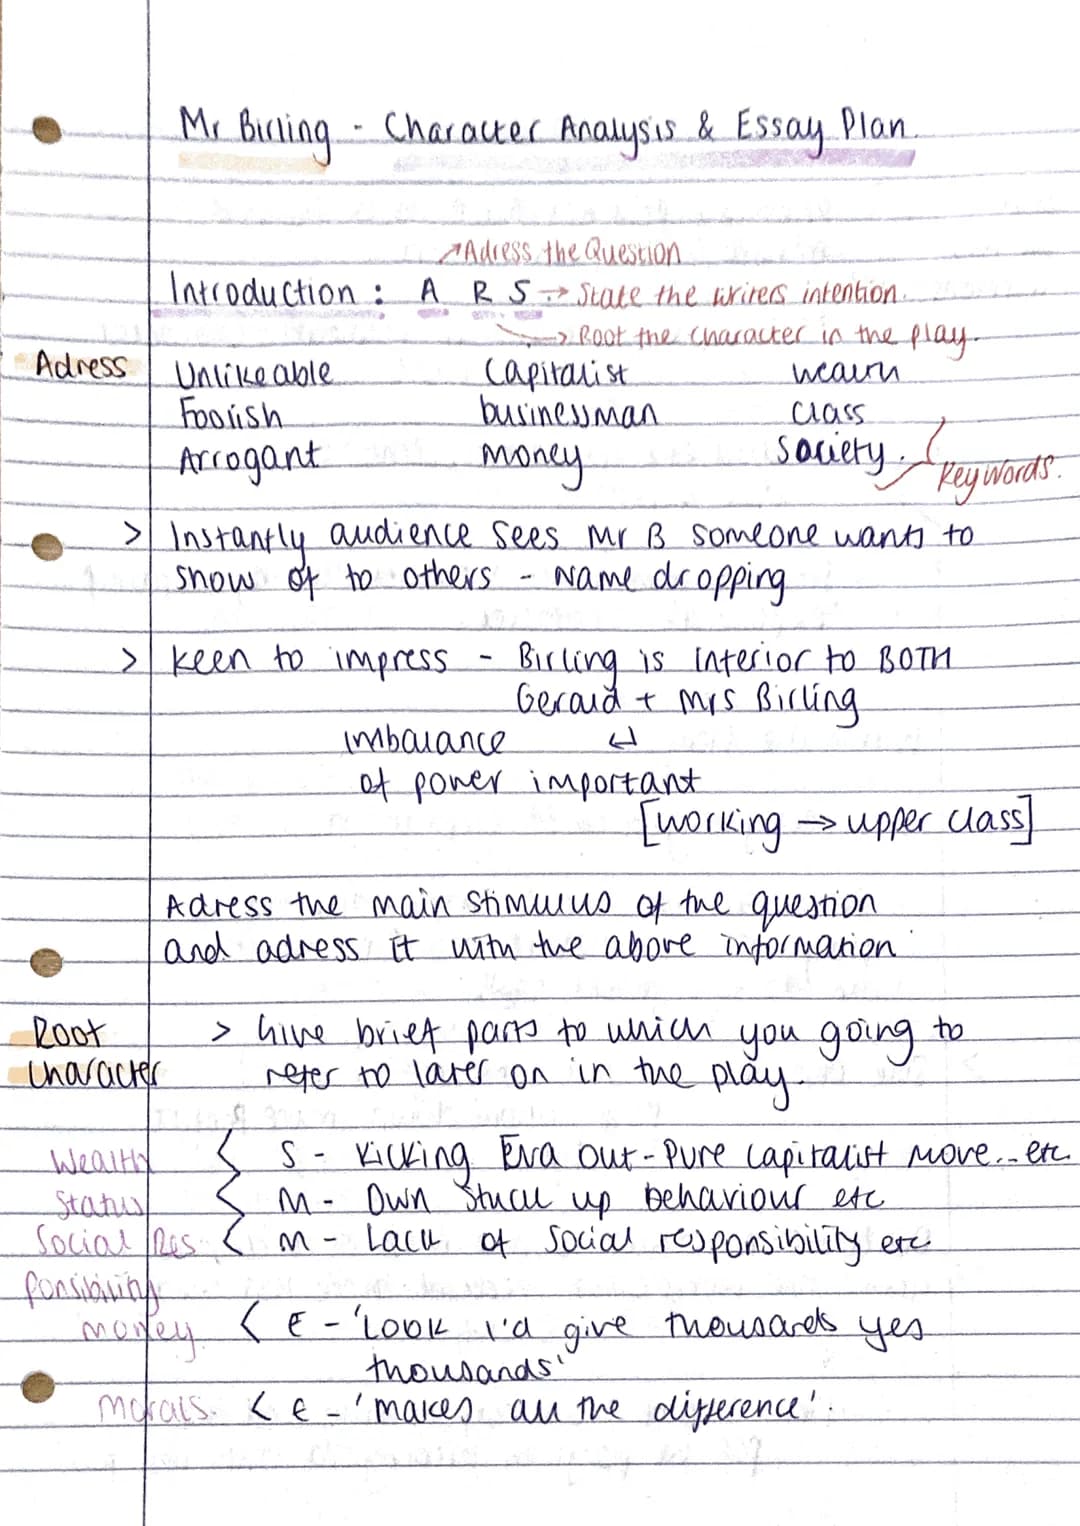 Mr Birling - Character Analysis & Essay Plan.
↗Adress the Question
Introduction : A R S → State the writers intention.
→ Root the character in the play.
Adress
Unlikeable Capitalist wealth
Foolish businessman class
Arrogant money society.
Key words.
> Instantly audience sees Mr B someone wants to
show of to others - Name dropping
> keen to impress - Birling is inferior to BOTH
Gerald + Mrs Birling
imbalance ↵
of power important
[working → upper class]
Adress the main stimulus of the question
and adress it with the above information
Root > Give brief parts to which you going to
Character refer to later on in the play.
Wealth < S - Kicking Eva out - Pure Capitalist move... etc.
Status < M - Own Stuck up behaviour etc
Social Res < M - Lack of Social responsibility etc
ponsibility
money < E - 'Look I'd give thousands yes
thousands'
Morals. < E - 'makes all the difference'.